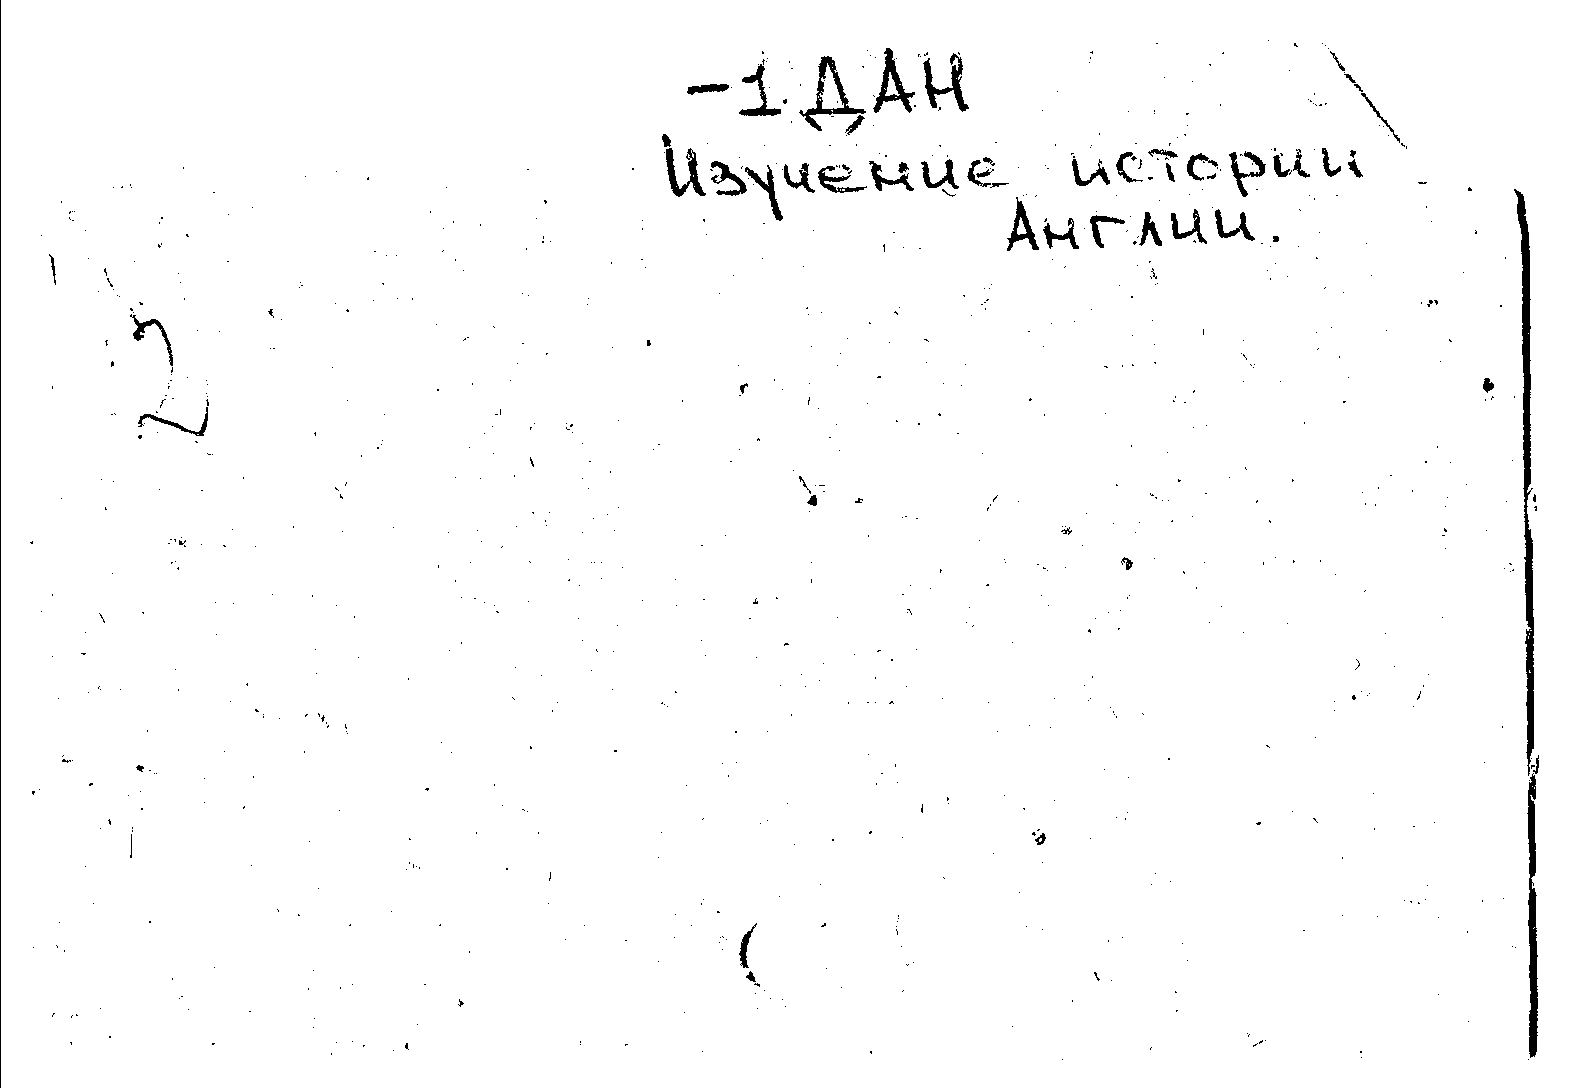 -1 ДАН
Изучение истории
Англии.
2